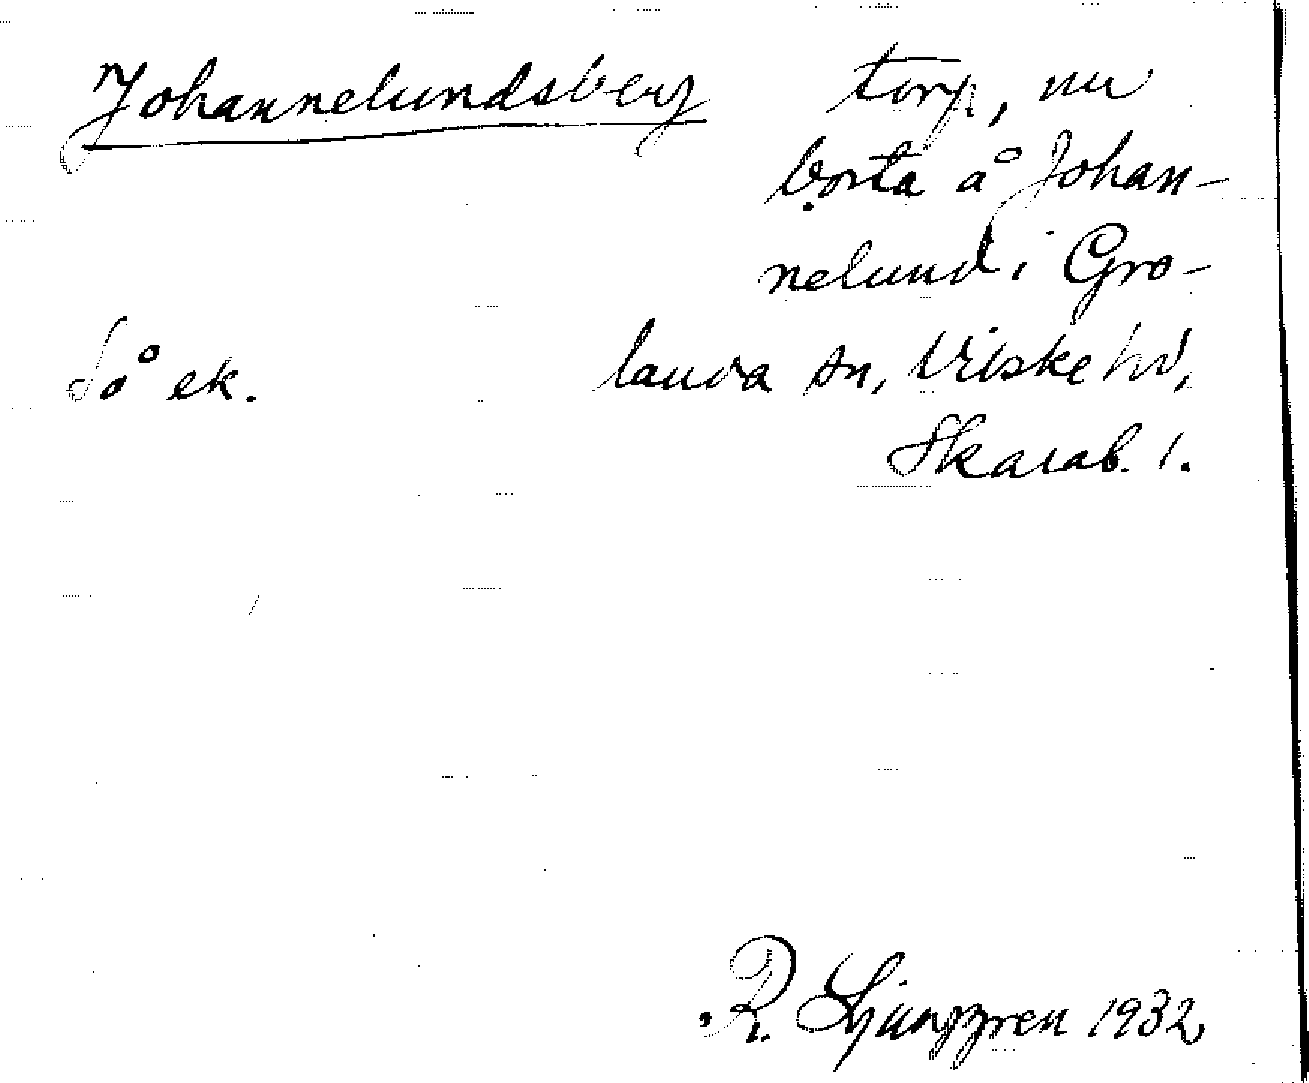 Johannelundsberg torp, nu
borta å Johan-
nelund i Gro-
så ek. landa sn, Vilske hd,
Skarab. l.
R. Ljunggren 1932